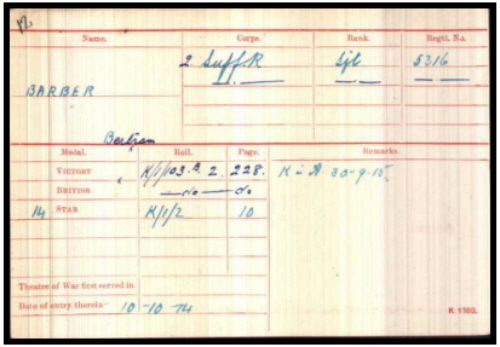 Name. Corps. Rank. Regtl. No.
2. Suff. R Sjt 5316
BARBER
Bertram
Medal. Roll. Page. Remarks.
VICTORY K/1/103.B.2. 228. K in A. 30-9-15.
BRITISH —do— do
14 STAR K/1/2 10
Theatre of War first served in
Date of entry therein 10-10-14
K 1380.